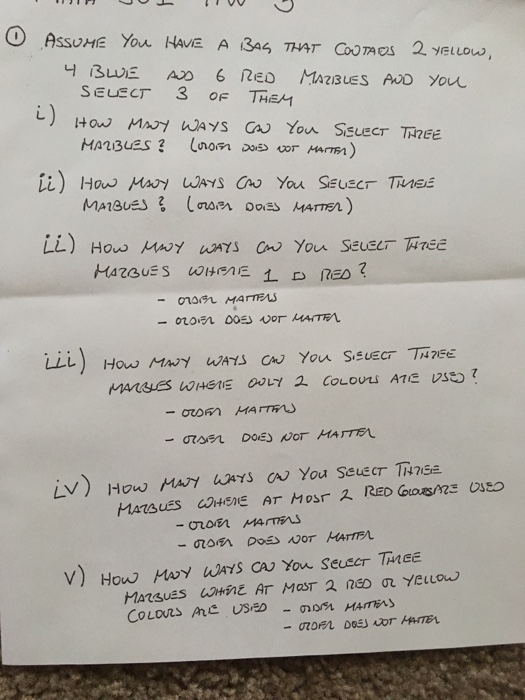 ① ASSUME YOU HAVE A BAG THAT CONTAINS 2 YELLOW,
4 BLUE AND 6 RED MARBLES AND YOU
SELECT 3 OF THEM
i) HOW MANY WAYS CAN YOU SELECT THREE
MARBLES? (ORDER DOES NOT MATTER)
ii) HOW MANY WAYS CAN YOU SELECT THREE
MARBLES? (ORDER DOES MATTER)
ii) HOW MANY WAYS CAN YOU SELECT THREE
MARBLES WHERE 1 IS RED?
- ORDER MATTERS
- ORDER DOES NOT MATTER
iii) HOW MANY WAYS CAN YOU SELECT THREE
MARBLES WHERE ONLY 2 COLOURS ARE USED?
- ORDER MATTERS
- ORDER DOES NOT MATTER
iv) HOW MANY WAYS CAN YOU SELECT THREE
MARBLES WHERE AT MOST 2 RED COLOURS ARE USED
- ORDER MATTERS
- ORDER DOES NOT MATTER
v) HOW MANY WAYS CAN YOU SELECT THREE
MARBLES WHERE AT MOST 2 RED OR YELLOW
COLOURS ARE USED - ORDER MATTERS
- ORDER DOES NOT MATTER